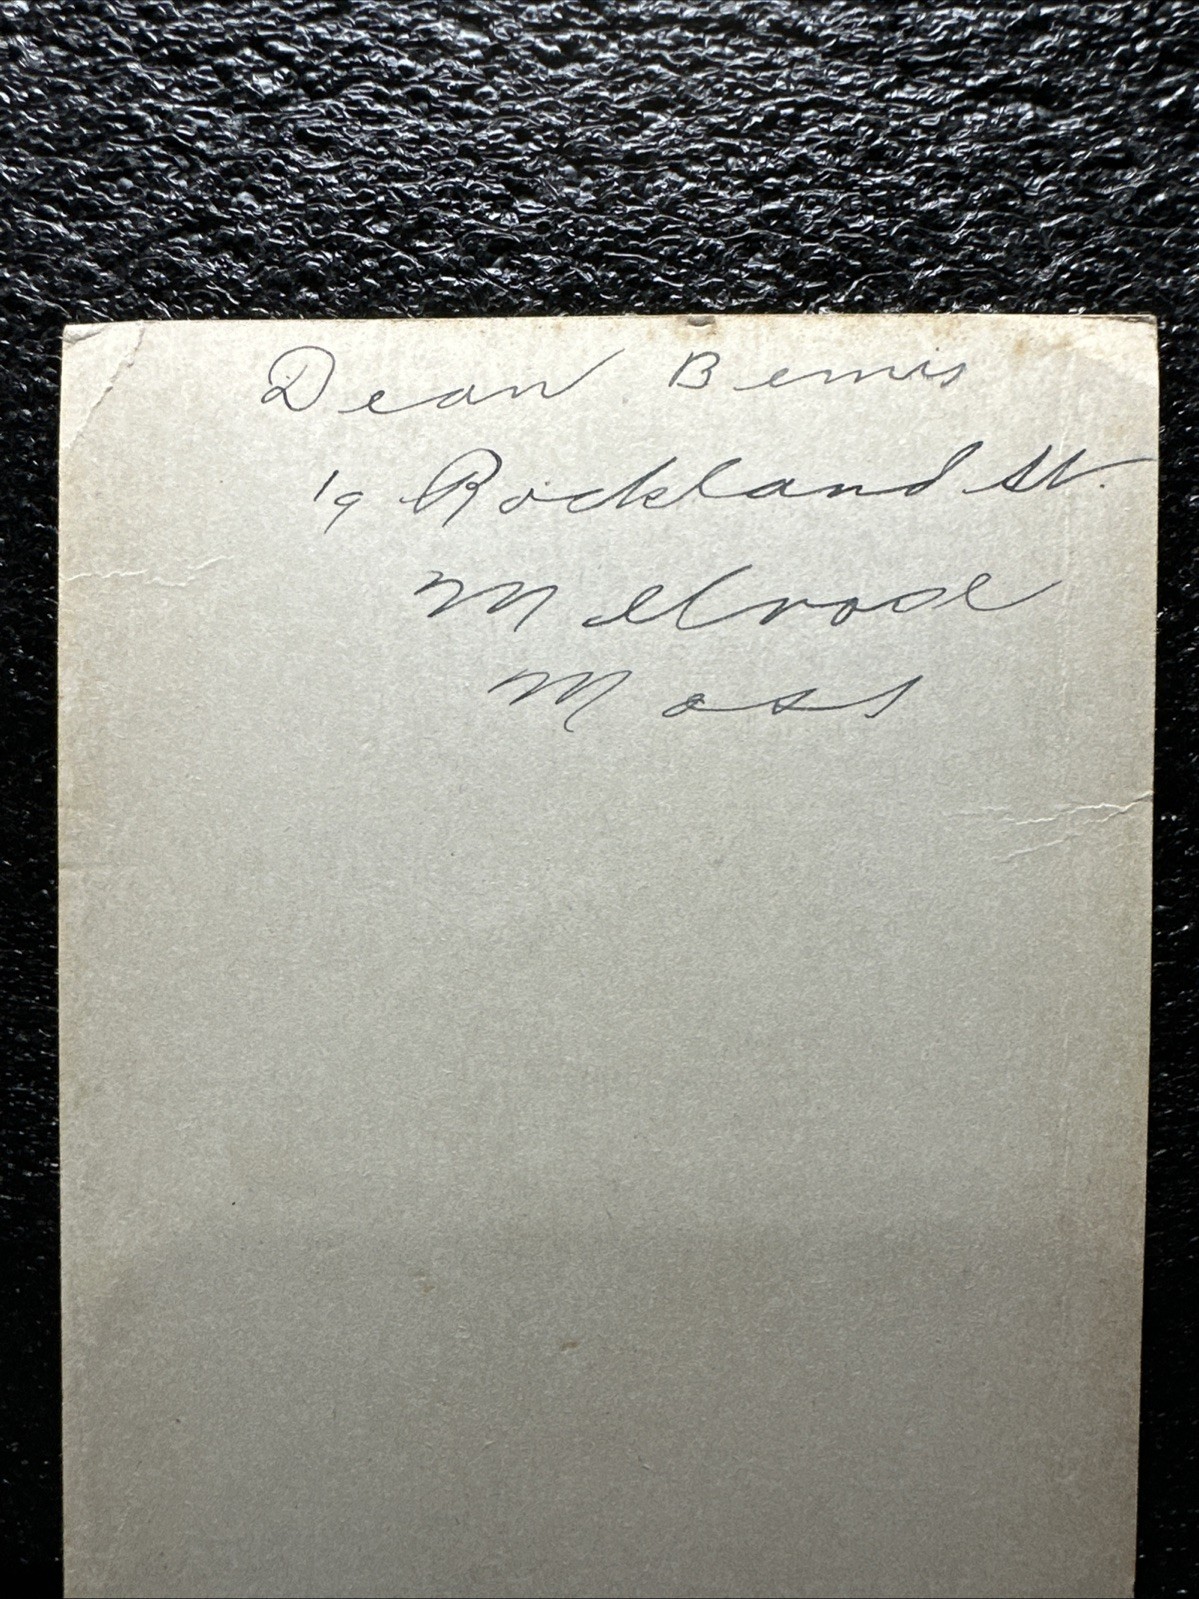 Dean Bemis
19 Rockland St.
Melrose
Mass